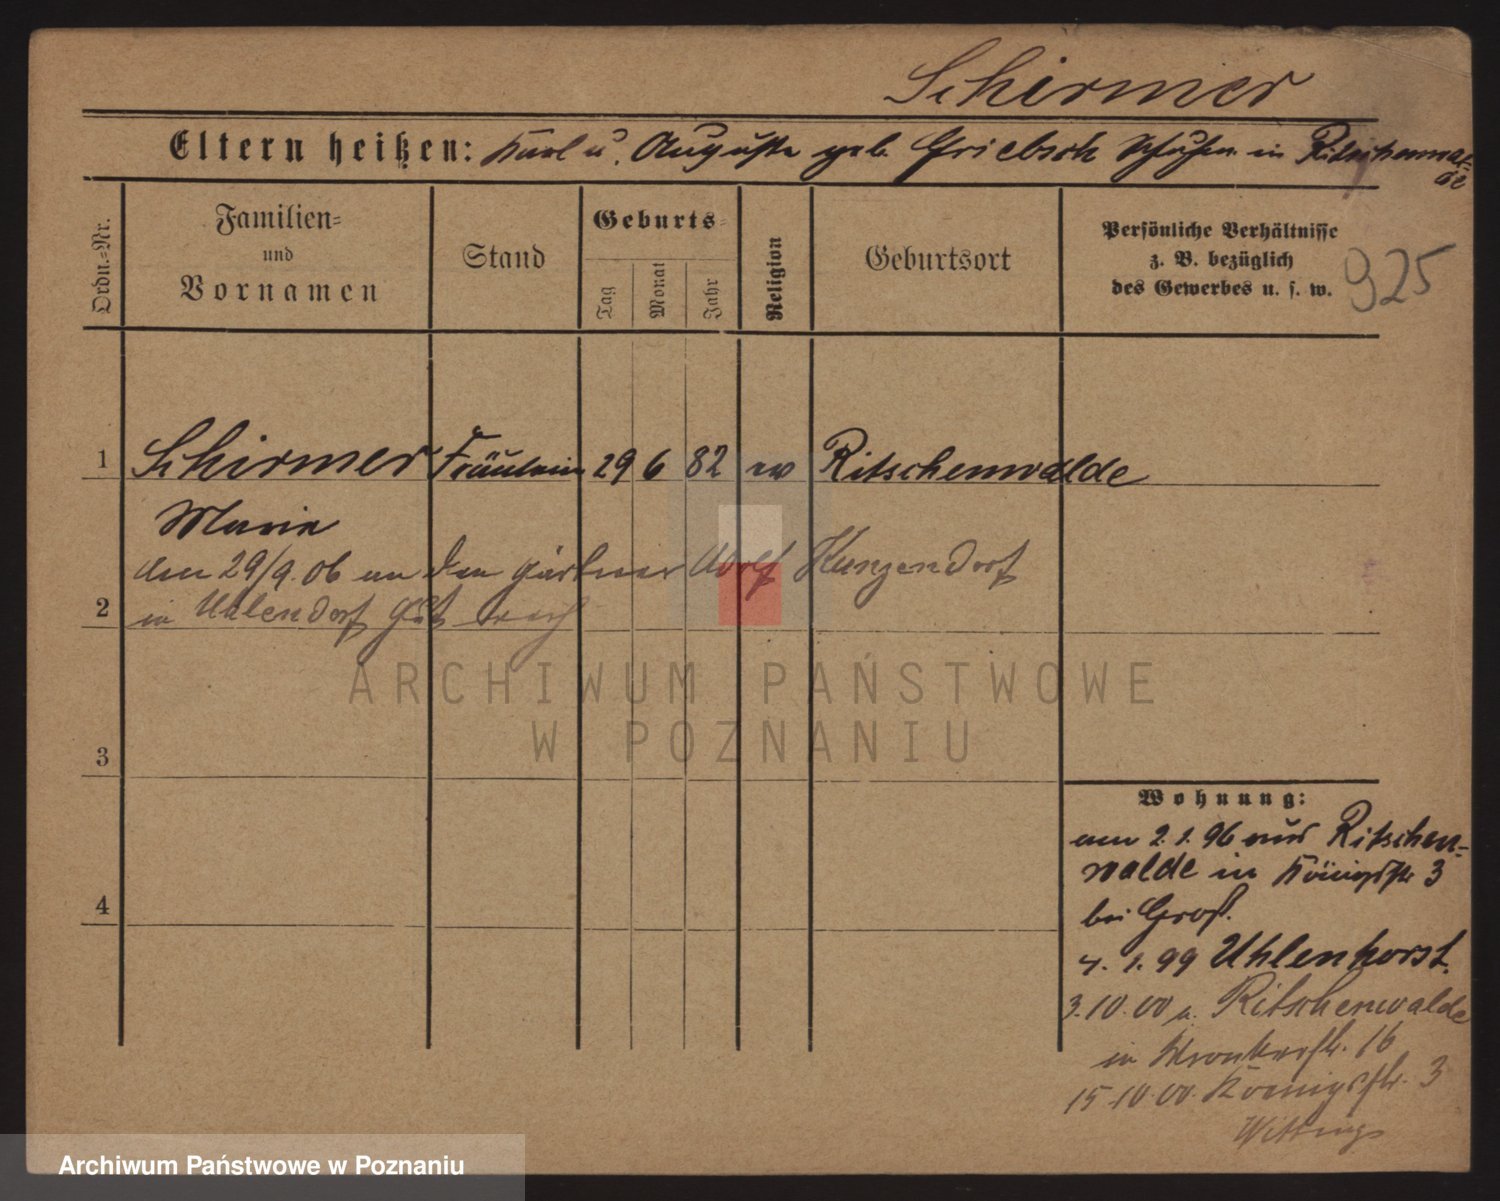 Schirmer
Eltern heißen: Karl u. Auguste geb. Griebsch in Ritschenwal-
de
Ordn.-Nr.
Familien-
und
Vornamen
Stand
Geburts-
Tag
Monat
Jahr
Religion
Geburtsort
Persönliche Verhältnisse
z. B. bezüglich
des Gewerbes u. s. w.
925
1 Schirmer Fräulein 29 6 82 ev Ritschenwalde
Marie
den 29/9. 06 an den Gärtner Adolf Kunzendorf
2 in Uhlendorf
ARCHIWUM PAŃSTWOWE
W POZNANIU
3
4
Wohnung:
am 2. 1. 96 aus Ritschen-
walde in Königstr 3
bei Groß.
4. 1. 99 Uhlenhorst.
3. 10. 00 n. Ritschenwalde
in Wronkerstr. 16
15.10.00. Königstr. 3
Archiwum Państwowe w Poznaniu